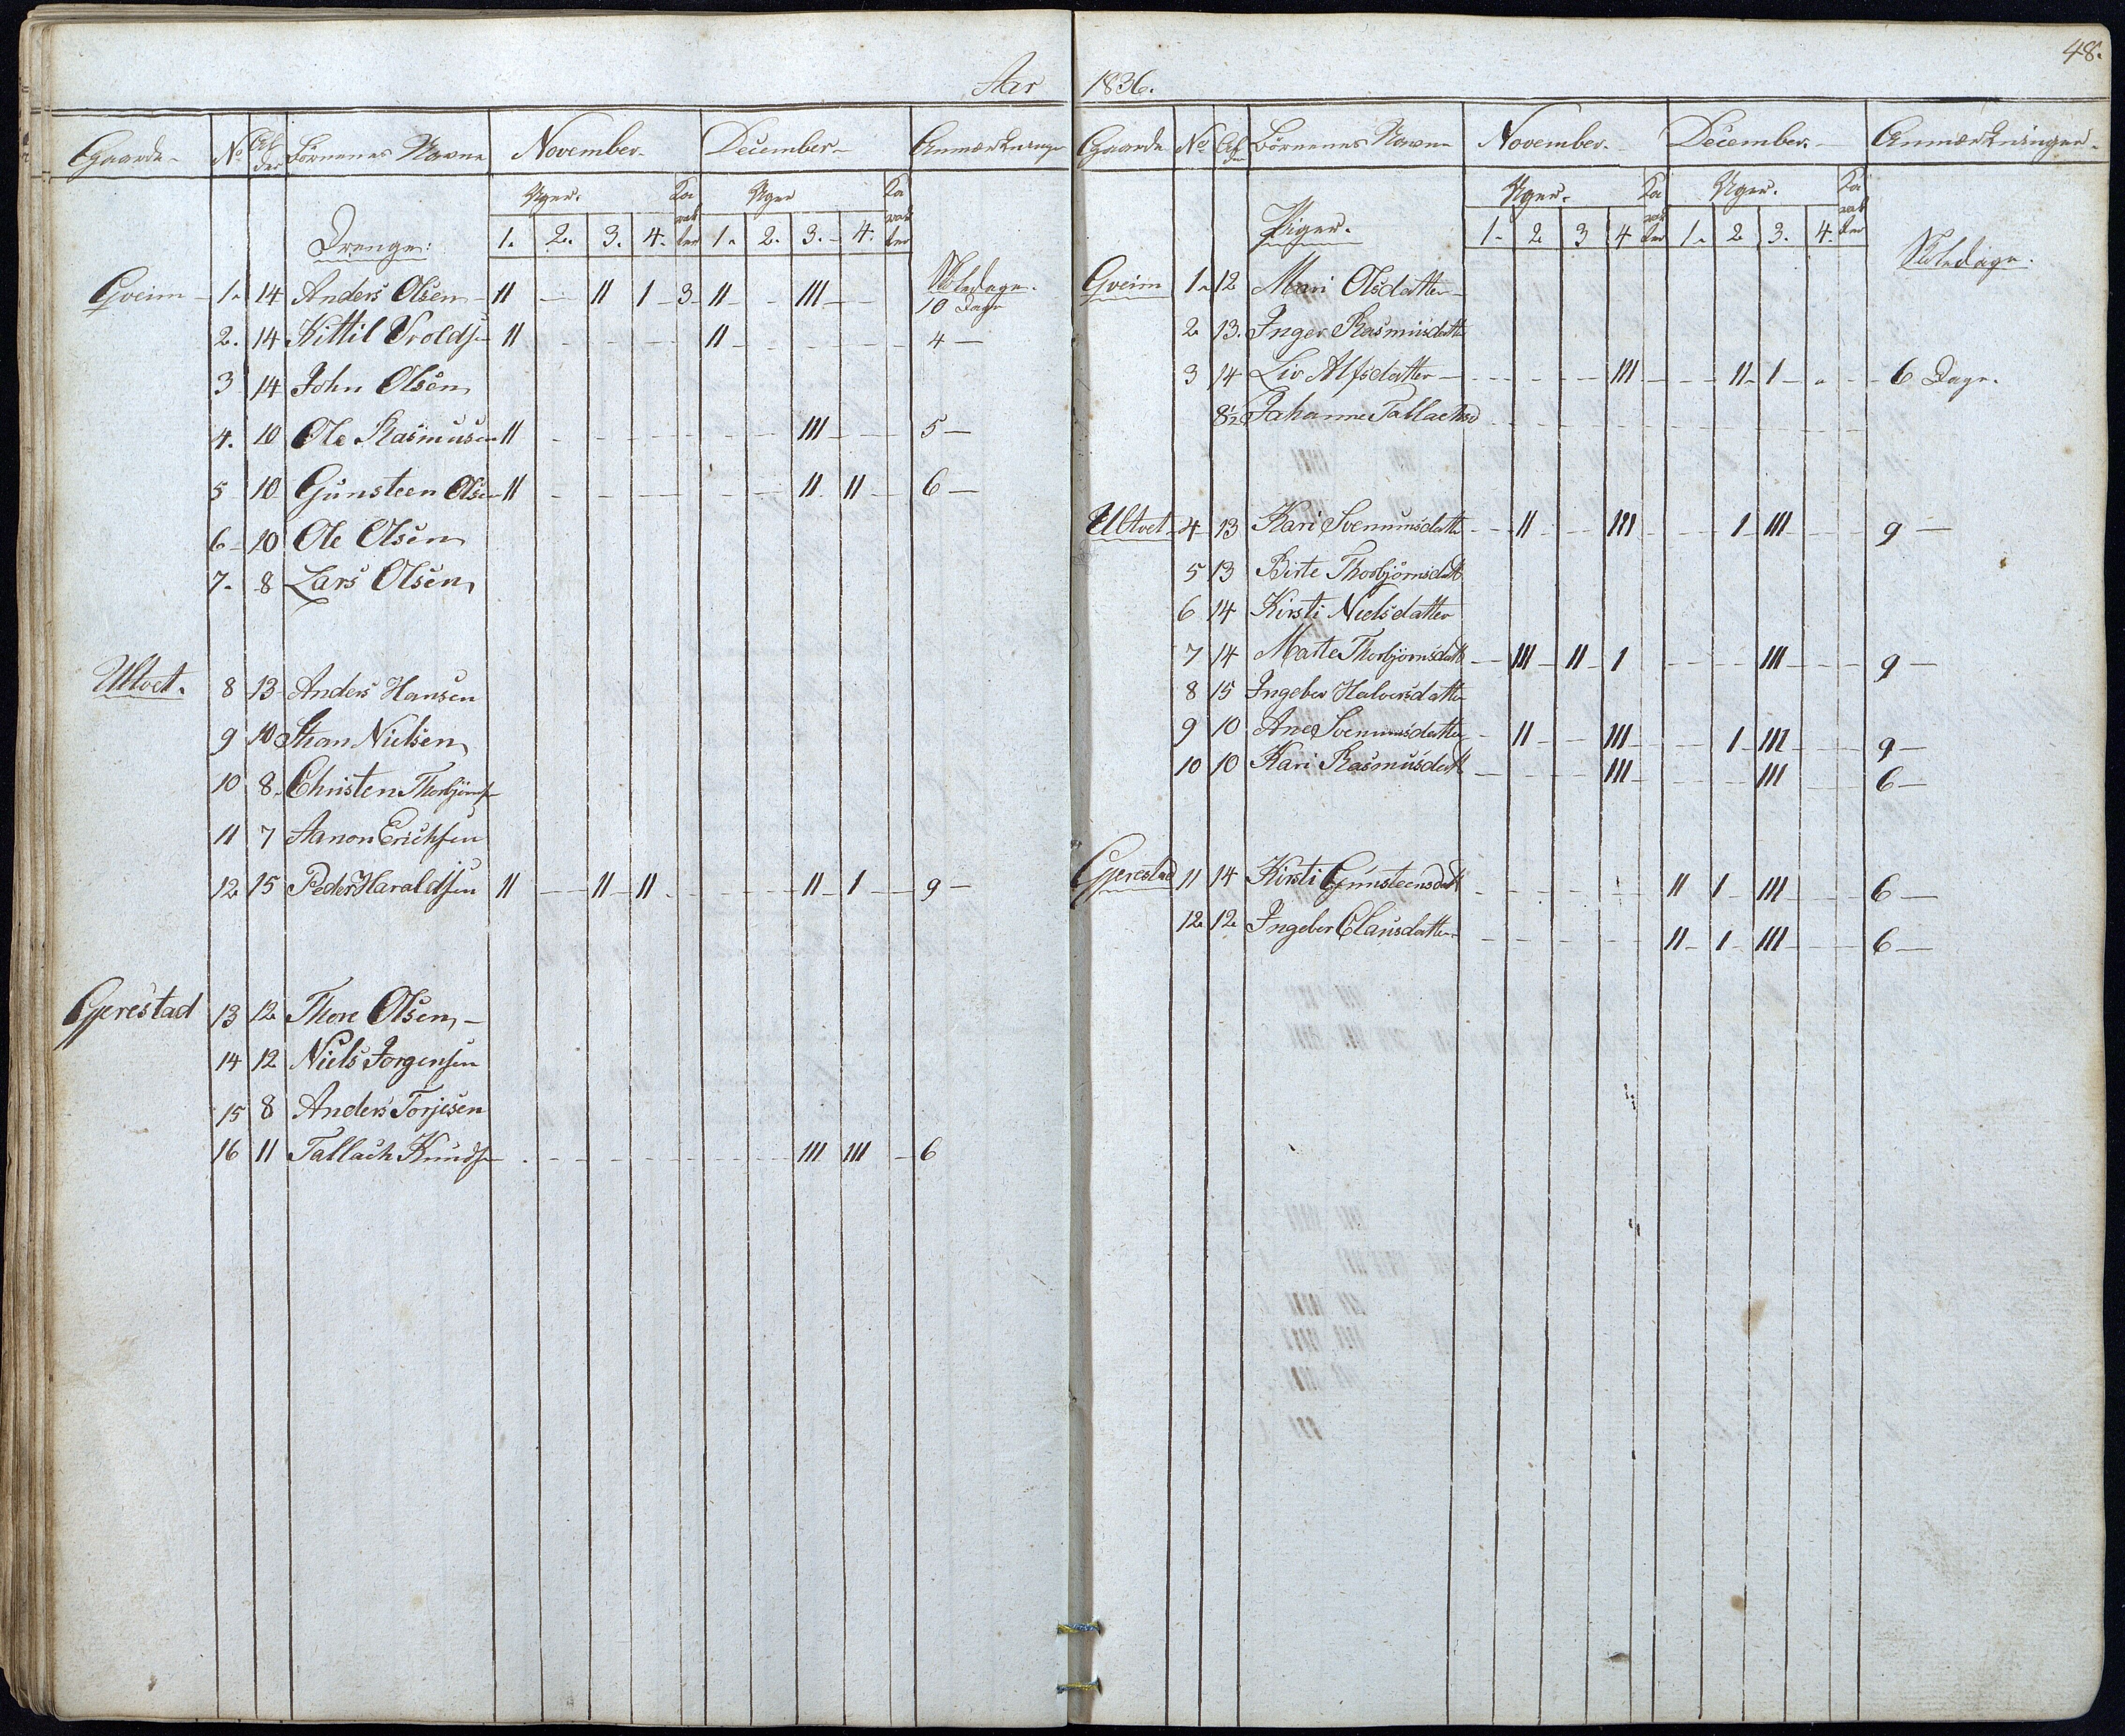 48.
Aar 1836.
Gaarde No Alder Børnenes Navne November December Anmærkninger
Uger. Karakter Uger Karakter
Drenge: 1. 2. 3. 4. 1. 2. 3. 4.
Skoledage.
Gveim 1. 14 Anders Olsen II II I 3 II III 10 Dage
2. 14 Kittil Vroldsen II II 4
3 14 John Olsen
4. 10 Ole Rasmusen II III 5
5 10 Gunsteen Olsen II II II 6
6 10 Ole Olsen
7. 8 Lars Olsen
Ultvet. 8 13 Anders Hansen
9 10 Nielsen
10 8. Christen Thorbjørns
11 7 Aanon Erichsen
12 15 Peder Haraldsen II II II II I 9
Gjerestad 13 12 Thore Olsen
14 12 Niels Jorgensen
15 8 Anders Torjesen
16 11 Tallach Knuds III III 6
Gaarde No Alder Børnenes Navne November. December. Anmærkninger.
Uger. Karakter Uger. Karakter
Piger. 1. 2 3 4 1. 2 3. 4.
Skoledage.
Gveim 1. 12 Mari Olsdatter
2 13. Inger Rasmusdatt
3 14 Liv Alfsdatter III II I 6 Dage.
8½ Johanne Tallachsd
Ultvet 4 13 Kari Svenumsdatt II III I III 9
5 13 Birte Thorbjørnsdatt
6 14 Kirsti Nielsdatter
7 14 Marte Thorbjørnsdatt III II I III 9
8 15 Ingebor Halvorsdatter
9 10 Ane Svenumsdatter II III I III 9
10 10 Kari Rasmusdatt III III 6
Gjerestad 11 14 Kirsti Gunsteensdatt II I III 6
12 12 Ingebor Clausdatter II I III 6